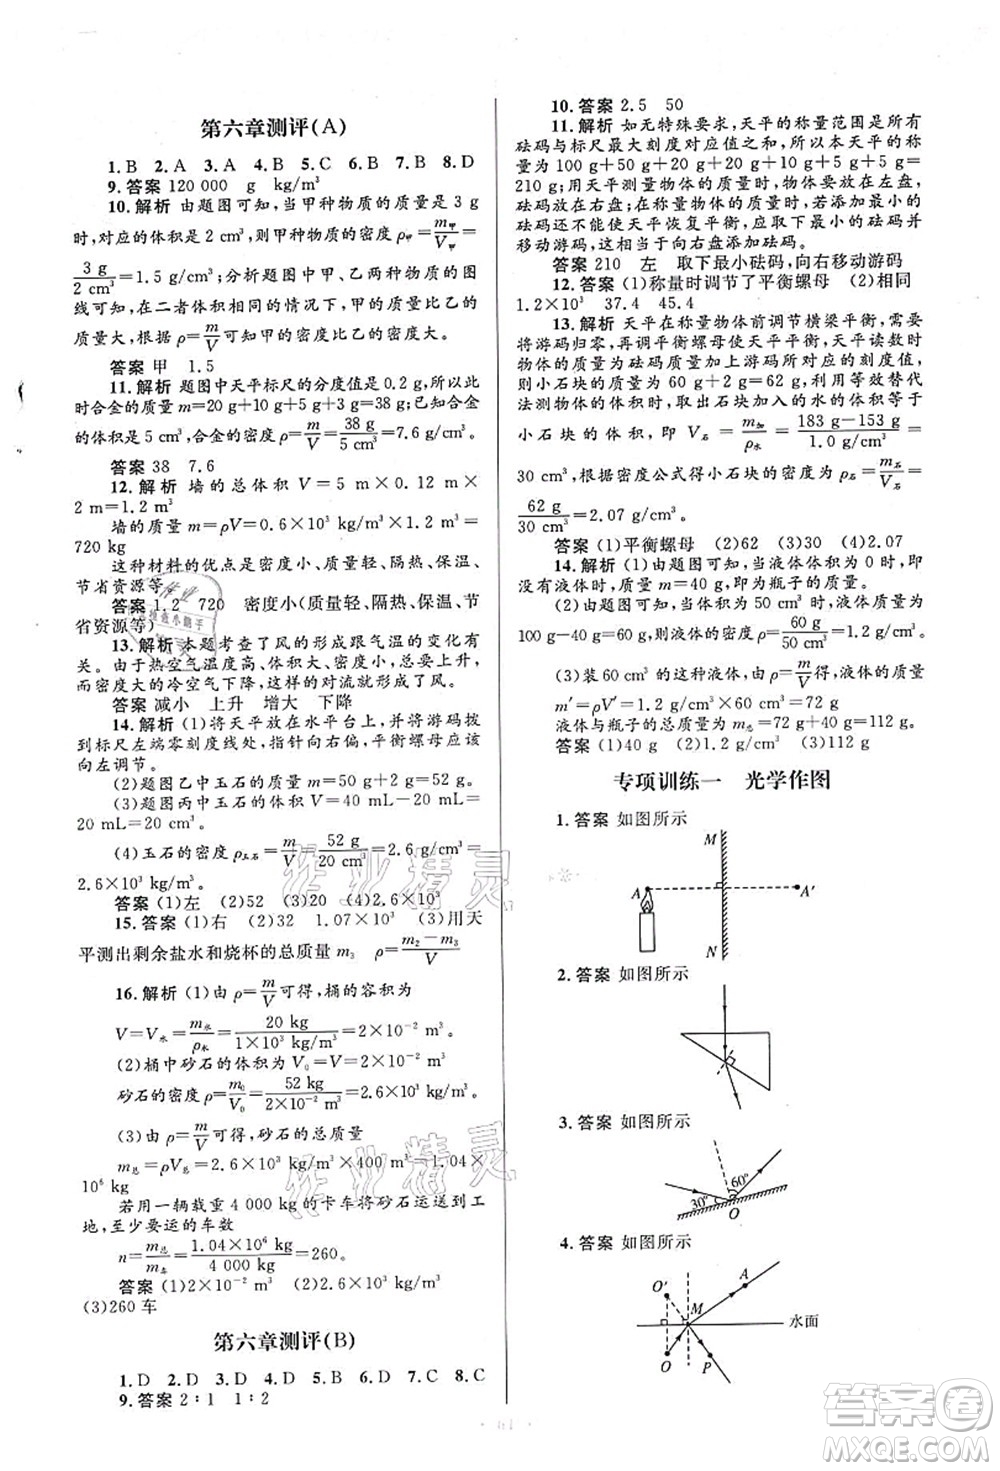 第六章测评(A)
1.B 2.A 3.A 4.B 5.C 6.B 7.B 8.D
9.答案 120 000 g kg/m³
10.解析 由题图可知,当甲种物质的质量是3 g
时,对应的体积是2 cm³,则甲种物质的密度ρ甲=m甲/V甲=
3 g/2 cm³=1.5 g/cm³;分析题图中甲、乙两种物质的图
线可知,在二者体积相同的情况下,甲的质量比乙的
质量大,根据ρ=m/V可知甲的密度比乙的密度大。
答案 甲 1.5
11.解析 题图中天平标尺的分度值是0.2 g,所以此
时合金的质量m=20 g+10 g+5 g+3 g=38 g;已知合金
的体积是5 cm³,合金的密度ρ=m/V=38 g/5 cm³=7.6 g/cm³。
答案 38 7.6
12.解析 墙的总体积 V=5 m×0.12 m×
2 m=1.2 m³
墙的质量m=ρV=0.6×10³ kg/m³×1.2 m³=
720 kg
这种材料的优点是密度小、质量轻、隔热、保温、
节省资源等
答案 1.2 720 密度小(质量轻、隔热、保温、节
省资源等)
13.解析 本题考查了风的形成跟气温的变化有
关。由于热空气温度高、体积大、密度小,要上升,
而密度大的冷空气下降,这样的对流就形成了风。
答案 减小 上升 增大 下降
14.解析 (1)将天平放在水平台上,并将游码拨
到标尺左端零刻度线处,指针向右偏,平衡螺母应该
向左调节。
(2)题图乙中玉石的质量m=50 g+2 g=52 g。
(3)题图丙中玉石的体积V=40 mL-
20 mL=20 cm³。
(4)玉石的密度ρ玉石=m/V=52 g/20 cm³=2.6 g/cm³=
2.6×10³ kg/m³。
答案 (1)左 (2)52 (3)20 (4)2.6×10³
15.答案 (1)右 (2)32 1.07×10³ (3)用天
平测出剩余盐水和烧杯的总质量m₃ ρ=(m₂-m₃)/V
16.解析 (1)由ρ=m/V可得,桶的容积为
V=V水=m水/ρ水=20 kg/(1×10³ kg/m³)=2×10⁻² m³。
(2)桶中砂石的体积为V₀=V=2×10⁻² m³
砂石的密度ρ=m₀/V₀=52 kg/(2×10⁻² m³)=2.6×10³ kg/m³。
(3)由ρ=m/V可得,砂石的总质量
m总=ρV总=2.6×10³ kg/m³×400 m³=1.04×
10⁶ kg
若用一辆载重4 000 kg的卡车将砂石运送到工
地,至少要运的车数
n=m总/m车=1.04×10⁶ kg/4 000 kg=260。
答案 (1)2×10⁻² m³ (2)2.6×10³ kg/m³
(3)260车
第六章测评(B)
1.D 2.D 3.D 4.D 5.B 6.D 7.C 8.C
9.答案 2∶1 1∶2
10.答案 2.5 50
11.解析 如无特殊要求,天平的称量范围是所有
砝码与标尺最大刻度对应值之和,所以本天平的称
量为100 g+50 g+20 g+20 g+10 g+5 g+5 g=
210 g;用天平测量物体的质量时,物体要放在左盘,
砝码放在右盘;在称量物体的质量时,如果添加最小
砝码后还不能使天平恢复平衡,应该取下最小砝码并
移动游码,这相当于向右盘添加砝码。
答案 210 左 取下最小砝码,向右移动游码
12.答案 (1)称量时调节了平衡螺母 (2)相同
1.2×10³ 37.4 45.4
13.解析 天平在称量物体前调节横梁平衡,需要
将游码归零,再调平衡螺母使天平平衡,天平读数时
物体的质量为砝码质量加上游码所对应的刻度值,
则小石块的质量为60 g+2 g=62 g,利用等效代替
法测物体的体积时,取出石块加入的水的体积等于
小石块的体积,即V石=m加/ρ水=(183 g-153 g)/1.0 g/cm³=
30 cm³,根据密度公式得小石块的密度ρ石=m石/V石=
62 g/30 cm³=2.07 g/cm³。
答案 (1)平衡螺母 (2)62 (3)30 (4)2.07
14.解析 (1)由题图可知,当液体体积为0时,即
没有液体时,质量m=40 g,即为瓶子的质量。
(2)由图可知,当体积为50 cm³时,液体质量为
100 g-40 g=60 g,则液体的密度ρ=60 g/50 cm³=1.2 g/cm³。
(3)装60 cm³的这种液体,由ρ=m/V得,液体的质量
m′=ρV′=1.2 g/cm³×60 cm³=72 g
液体与瓶子的总质量m总=72 g+40 g=112 g。
答案 (1)40 g (2)1.2 g/cm³ (3)112 g
专项训练一 光学作图
1.答案 如图所示
M
A
A′
N
2.答案 如图所示
3.答案 如图所示
60°
30°
O
4.答案 如图所示
O′
A
M
水面
O
P
作业精灵
作业精灵
答案圈
MXQE.COM